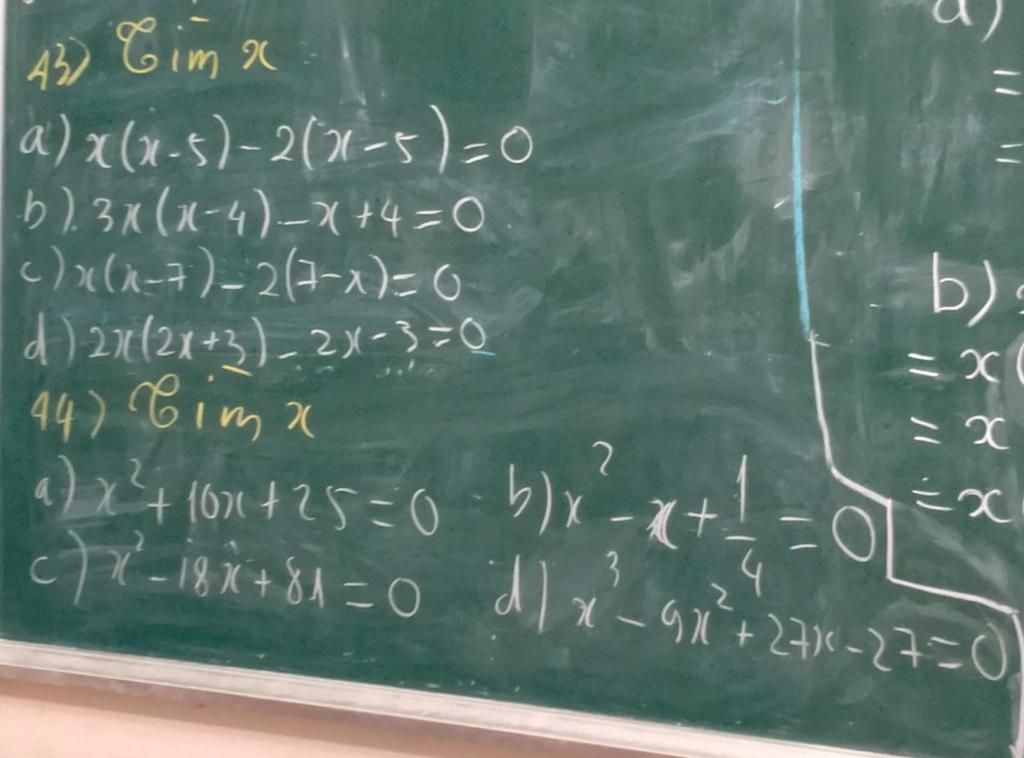 43) Tìm x
a) x(x-5)-2(x-5)=0
b) 3x(x-4)-x+4=0
c) x(x-7)-2(7-x)=0
d) 2x(2x+3)-2x-3=0
44) Tìm x
a) x²+10x+25=0
b) x²-x+1/4=0
c) x²-18x+81=0
d) x³-9x²+27x-27=0
a)
=
=
b)
= x(
= x
= x